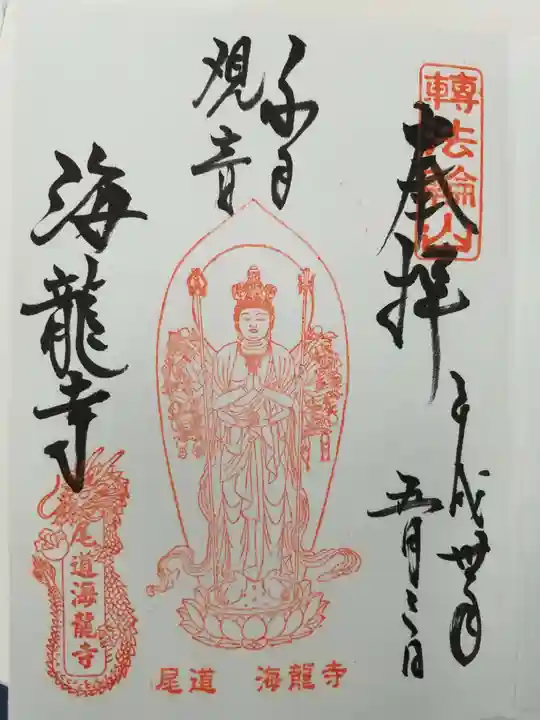 轉法輪山
奉拝
平成丗年
五月三日
千手
観音
海龍寺
尾道海龍寺
尾道 海龍寺